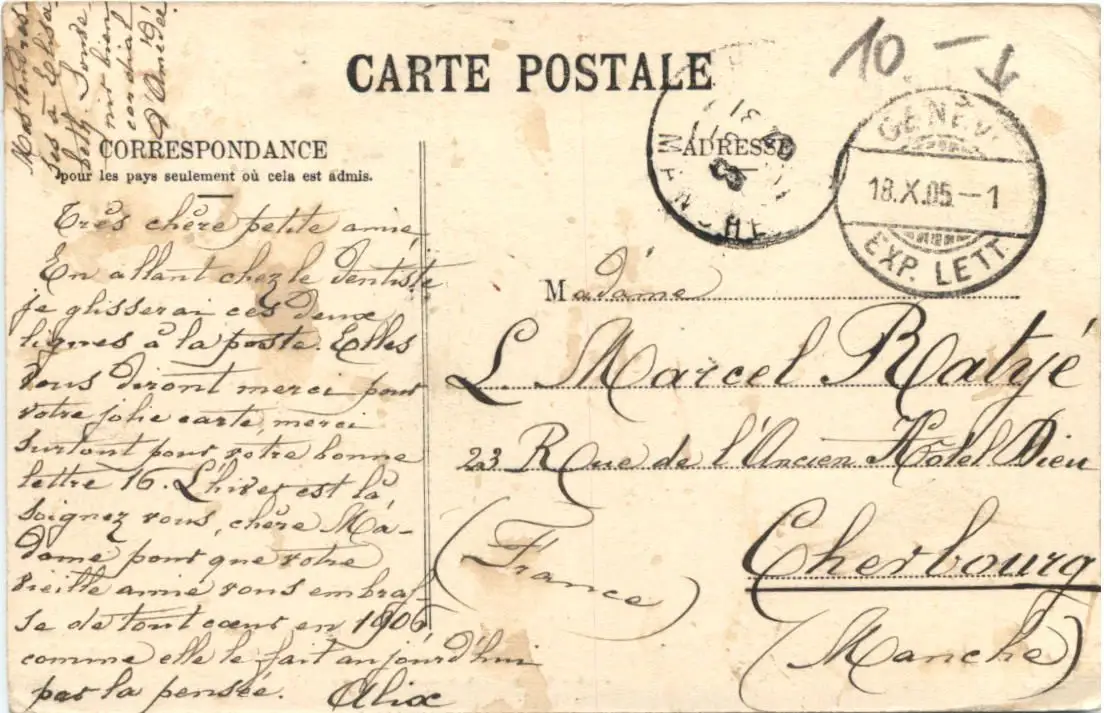 CARTE POSTALE
10 —
CORRESPONDANCE
pour les pays seulement où cela est admis.
ADRESSE
MANCHE
GENÈV
18.X.05.—1
EXP. LETT.
Très chère petite amie
En allant chez le dentiste
je glisserai ces deux
lignes à la poste. Elles
vous diront merci pour
votre jolie carte, merci
surtout pour votre bonne
lettre 16. L'hiver est là,
soignez vous, chère Ma-
dame pour que votre
vieille amie vous embras
se de tout cœur en 1906
comme elle le fait aujourd'hui
par la pensée. Alix
Mes tendres-
ses à Elisa
beth. Souve-
nir bien
cordial
d'Amédée
Madame
L. Marcel Ratyé
23 Rue de l'Ancien Hôtel Dieu
Cherbourg
(France)
(Manche)